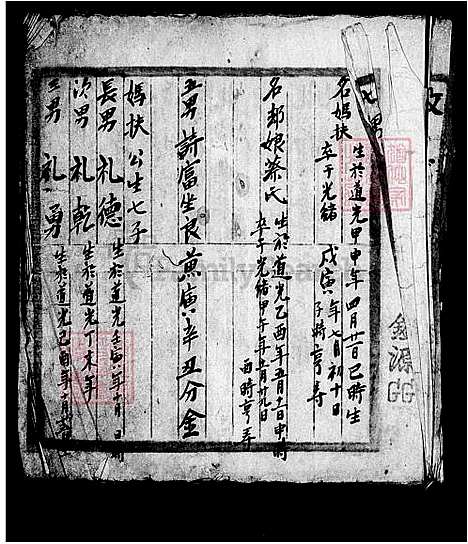 男
名媽扶 生於道光甲申年四月廿一日巳時生
卒于光緒戊寅年七月初十日子時享寿
名郝娘蔡氏 生於道光乙酉年五月十一日申時
卒于光緒甲午年五月廿九日酉時享寿
五男詩富坐艮兼寅辛丑分金
媽扶公生七子
長男礼德 生於道光壬寅年十月 日時
次男礼乾 生於道光丁未年
三男礼勇 生於道光己酉年十月
金源
GG